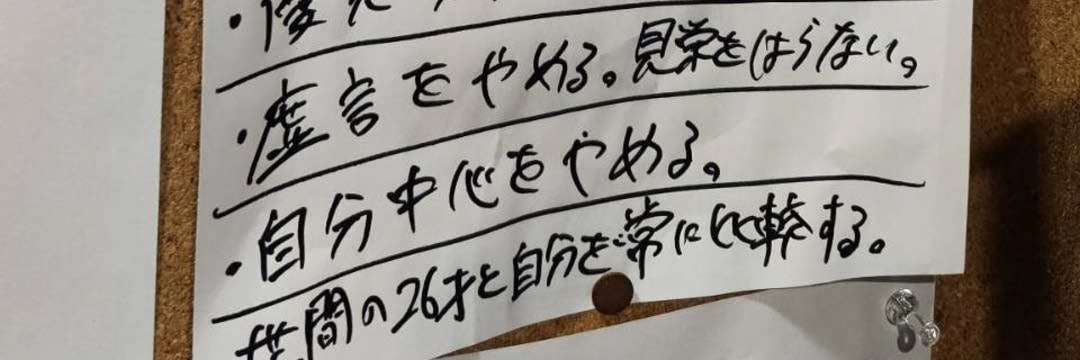 ・虚言をやめる。見栄をはらない。
・自分中心をやめる。
世間の26才と自分を常に比較する。